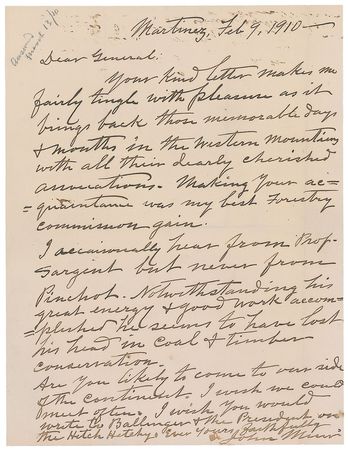 Answered
March 13/10
Martinez, Feb 9, 1910—
Dear General:
Your kind letter makes me
fairly tingle with pleasure as it
brings back those memorable days
& months in the Western Mountains
with all their dearly cherished
associations. Making your ac-
=quaintance was my best Forestry
commission gain.
I occasionally hear from Prof-
Sargent but never from
Pinchot. Notwithstanding his
great energy & good work accom-
=plished he seems to have lost
his head in coal & timber
conservation.
Are you likely to come to our side
of the continent. I wish we could
meet often. I wish you would
write to Ballinger & the President on
the Hetch Hetchy. Ever Yours faithfully
John Muir